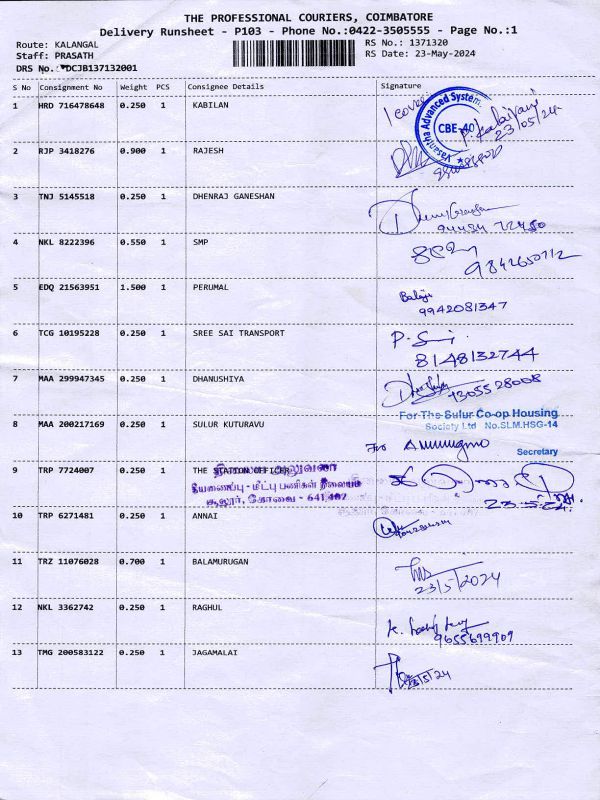 THE PROFESSIONAL COURIERS, COIMBATORE
Delivery Runsheet - P103 - Phone No.:0422-3505555 - Page No.:1
Route: KALANGAL
RS No.: 1371320
Staff: PRASATH
RS Date: 23-May-2024
DRS No.: DCJB137132001
S No Consignment No Weight PCS Consignee Details Signature
1 HRD 716478648 0.250 1 KABILAN
1 cover
Vasantha Advanced Systems
CBE-40
23/05/24
2 RJP 3418276 0.900 1 RAJESH
3 TNJ 5145518 0.250 1 DHENRAJ GANESHAN
94434 72450
4 NKL 8222396 0.550 1 SMP
9842650712
5 EDQ 21563951 1.500 1 PERUMAL
Balaji
9942081347
6 TCG 10195228 0.250 1 SREE SAI TRANSPORT
8148132744
7 MAA 299947345 0.250 1 DHANUSHIYA
For The Sulur Co-op Housing
Society Ltd No.SLM.HSG-14
8 MAA 200217169 0.250 1 SULUR KUTURAVU
For
Secretary
9 TRP 7724007 0.250 1 THE STATION OFFICER
நிலைய அலுவலர்
தீயணைப்பு - மீட்பு பணிகள் நிலையம்
சூலூர், கோவை - 641 402
23.5.24
10 TRP 6271481 0.250 1 ANNAI
11 TRZ 11076028 0.700 1 BALAMURUGAN
23/5/2024
12 NKL 3362742 0.250 1 RAGHUL
9655699909
13 TMG 200583122 0.250 1 JAGAMALAI
23/5/24